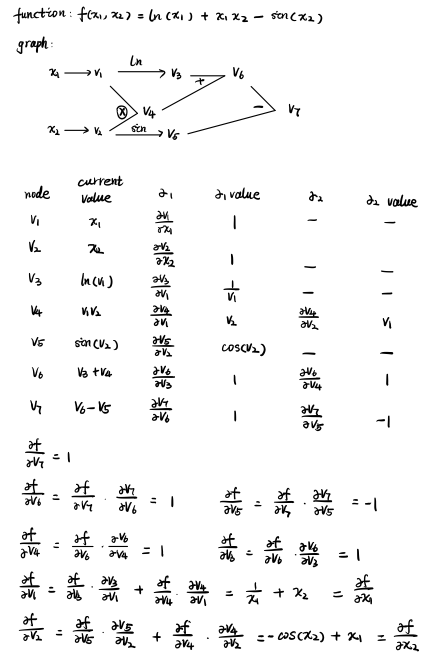 function: f(x₁, x₂) = ln(x₁) + x₁x₂ − sin(x₂)
graph:
x₁ → v₁ ln→ v₃ + v₆
⊗ v₄ − v₇
x₂ → v₂ sin→ v₅
node current value ∂₁ ∂₁ value ∂₂ ∂₂ value
v₁ x₁ ∂v₁/∂x₁ 1 − −
v₂ x₂ ∂v₂/∂x₂ 1 − −
v₃ ln(v₁) ∂v₃/∂v₁ 1/v₁ − −
v₄ v₁v₂ ∂v₄/∂v₁ v₂ ∂v₄/∂v₂ v₁
v₅ sin(v₂) ∂v₅/∂v₂ cos(v₂) − −
v₆ v₃+v₄ ∂v₆/∂v₃ 1 ∂v₆/∂v₄ 1
v₇ v₆−v₅ ∂v₇/∂v₆ 1 ∂v₇/∂v₅ −1
∂f/∂v₇ = 1
∂f/∂v₆ = ∂f/∂v₇ · ∂v₇/∂v₆ = 1 ∂f/∂v₅ = ∂f/∂v₇ · ∂v₇/∂v₅ = −1
∂f/∂v₄ = ∂f/∂v₆ · ∂v₆/∂v₄ = 1 ∂f/∂v₃ = ∂f/∂v₆ · ∂v₆/∂v₃ = 1
∂f/∂v₁ = ∂f/∂v₃ · ∂v₃/∂v₁ + ∂f/∂v₄ · ∂v₄/∂v₁ = 1/x₁ + x₂ = ∂f/∂x₁
∂f/∂v₂ = ∂f/∂v₅ · ∂v₅/∂v₂ + ∂f/∂v₄ · ∂v₄/∂v₂ = −cos(x₂) + x₁ = ∂f/∂x₂